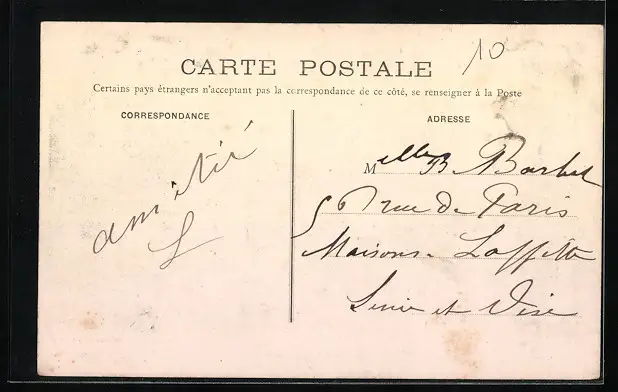 10
CARTE POSTALE
Certains pays étrangers n'acceptant pas la correspondance de ce côté, se renseigner à la Poste
CORRESPONDANCE
amitié
L
ADRESSE
Melle B Barbet
56 rue de Paris
Maisons-Laffitte
Seine et Oise